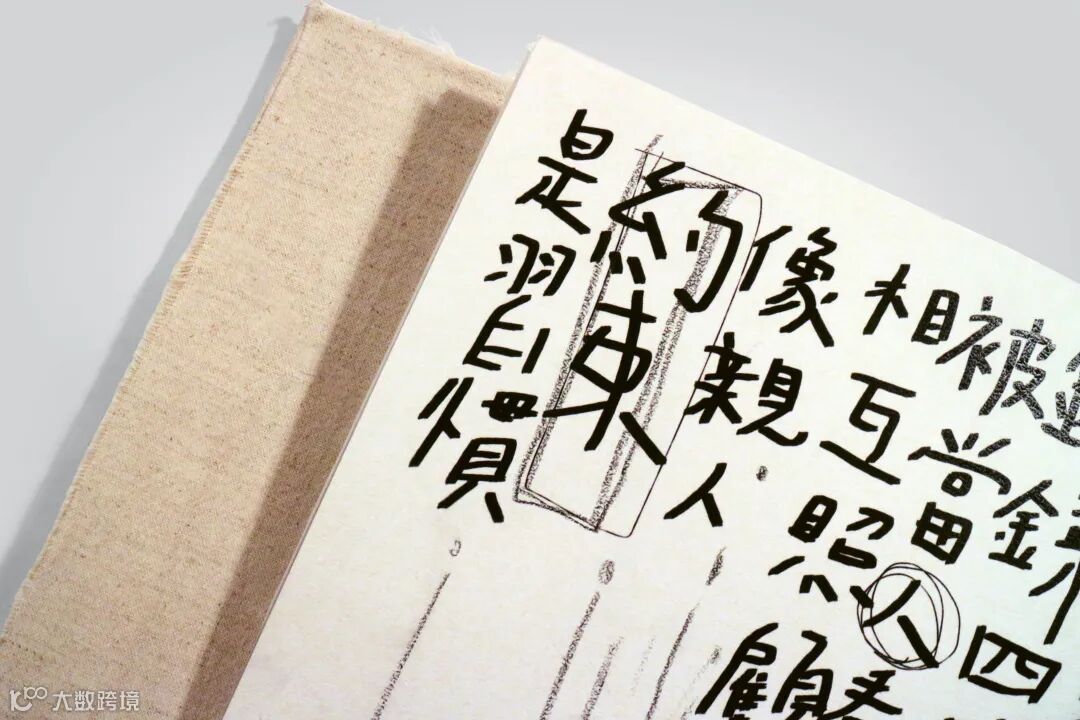 四
被當人
相互照顧
像親人
約束
是習慣
大数跨境